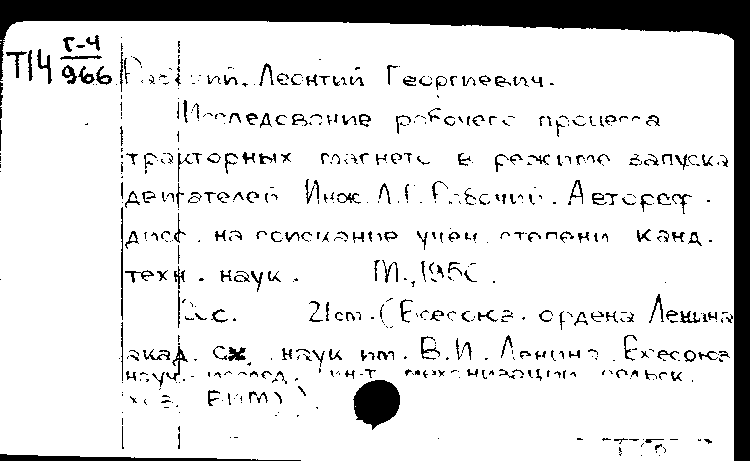 Т14 Г-4
966
Рабочий, Леонтий Георгиевич.
Исследование рабочего процесса
тракторных магнето в режиме запуска
двигателей Инж. Л.Г. Рабочий. Автореф.
дисс. на соискание учен. степени канд.
техн. наук. М.,
с. 21 cm. (Всесоюз. ордена Ленина
акад. сх. наук им. В.И. Ленина. Всесоюз
науч.-исслед. ин-т механизации сельск.
хоз. ВИМ)